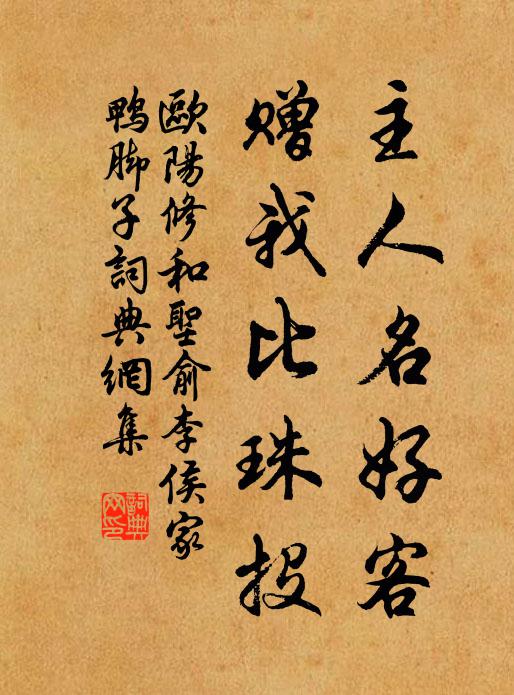 主人名好客
贈我比珠投
歐陽修和聖俞李侯家
鴨脚子詞典網集
詞典
网印